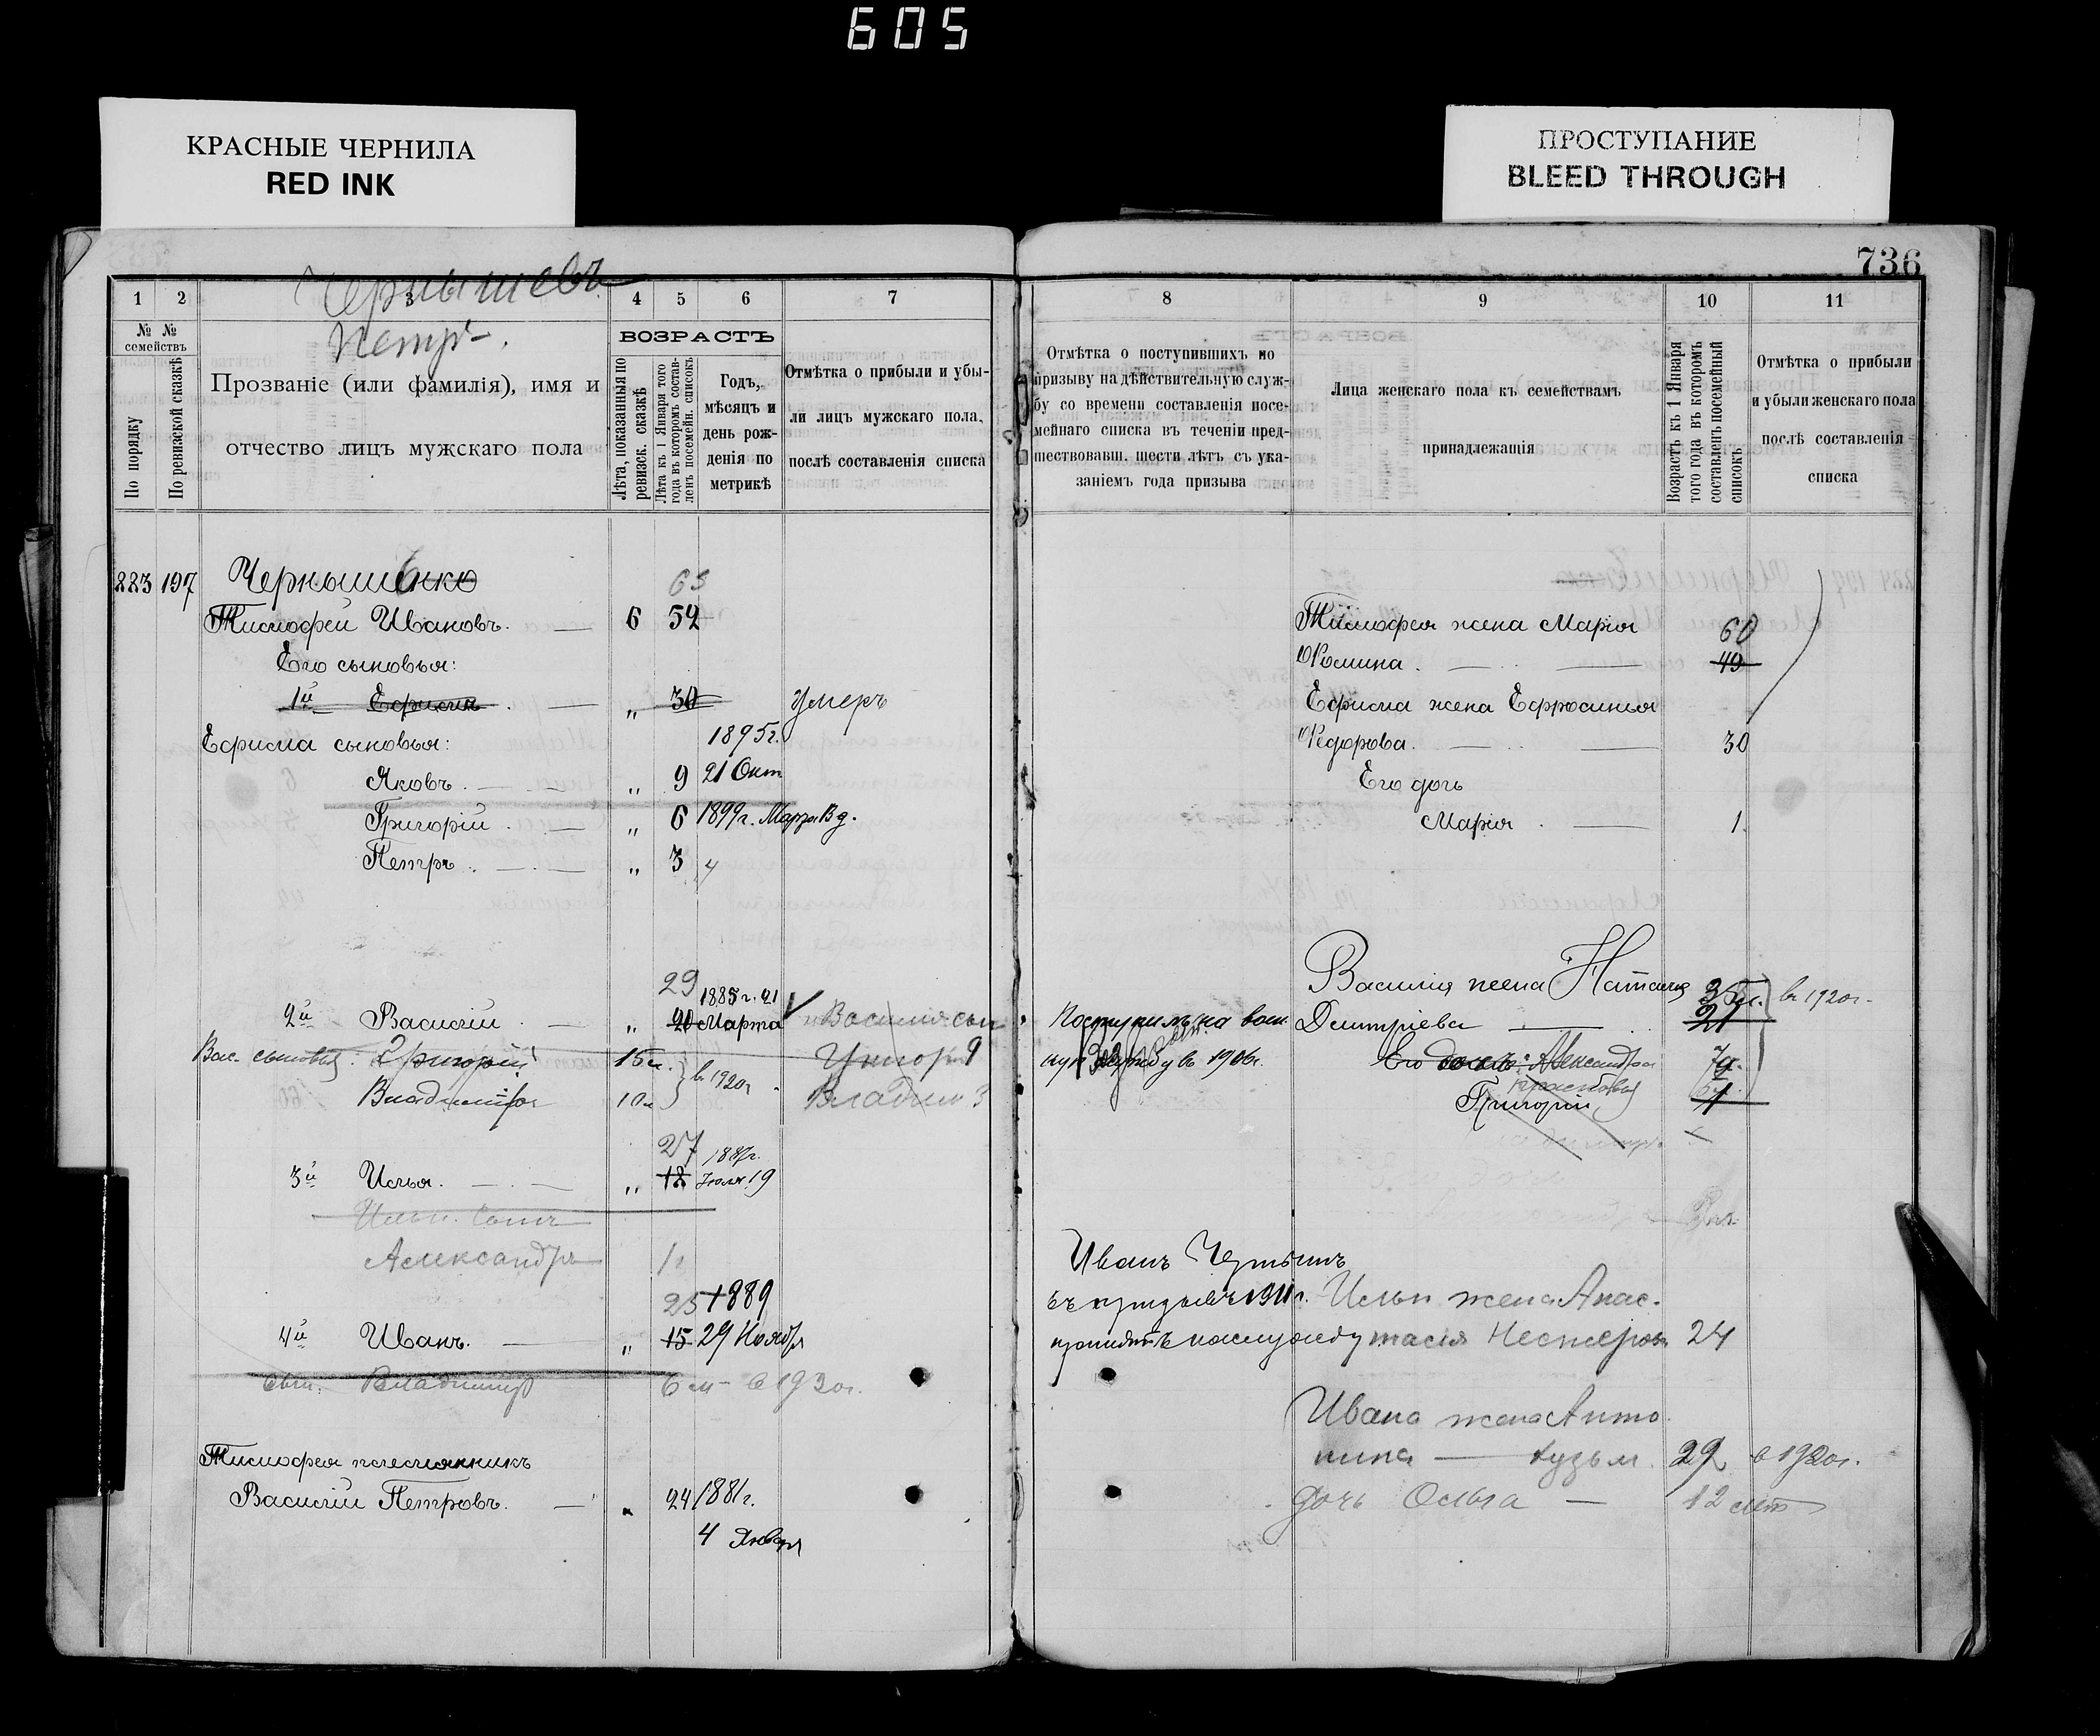 605
КРАСНЫЕ ЧЕРНИЛА
RED INK
ПРОСТУПАНИЕ
BLEED THROUGH
736
Чернышевъ
Петръ.
1 2 3 4 5 6 7
№ № семействъ
По порядку
По ревизской сказкѣ
Прозваніе (или фамилія), имя и
отчество лицъ мужскаго пола
ВОЗРАСТЪ
Лѣта, показанныя по
ревизск. сказкѣ
Лѣта къ 1 Января того
года въ которомъ состав-
ленъ посемейн. списокъ
Годъ,
мѣсяцъ и
день рож-
денія по
метрикѣ
Отмѣтка о прибыли и убы-
ли лицъ мужскаго пола,
послѣ составленія списка
8 9 10 11
Отмѣтка о поступившихъ по
призыву на дѣйствительную служ-
бу со времени составленія посе-
мейнаго списка въ теченіи пред-
шествовавш. шести лѣтъ съ ука-
заніемъ года призыва
Лица женскаго пола къ семействамъ
принадлежащія
Возрастъ къ 1 Января
того года въ которомъ
составленъ посемейный
списокъ
Отмѣтка о прибыли
и убыли женскаго пола
послѣ составленія
списка
883 197 Чернышенко 63
Тимофей Ивановъ. — 6 54
Его сыновья:
1й Ефимъ. — „ 30 умеръ
Ефима сыновья: 1895г.
Яковъ. — „ 9 21 Окт
Григорій. — „ 6 1899г. Марта
Петръ. — „ 3
29 1885г. 21
2й Василій. — „ 20 Марта Василія сын
Вас. сыновья: Григорій 15л. в 1920г. 9
Владиміръ 10л Владим 3
27 1887г.
3й Илья. — „ 18 Іюля 19
Ильи. сынъ
Александръ 1г
25 1889
4й Иванъ. — „ 15 29 Ноября
сын: Владимиръ 6 м - в 1920г.
Тимофея племянникъ
Василій Петровъ. — „ 24 1881г.
4 Января
Тимофея жена Марія 60
Фомина. — 49
Ефима жена Ефросинья
Федорова. — 30
Его дочь
Марія. — 1
Василія жена Наталія 35л. в 1920г.
Поступилъ на воен. Дмитріева — 21
службу въ 1906г. Его дочь: Александра 7д.
Григорій 1
Иванъ Черныш
въ призывъ 1911г. Ильи жена Анас-
принятъ на службу тасія Нестерова 24
Ивана жена Анто
нина — Кузьм. 29 в 1920г.
дочь Ольга — 12 лет